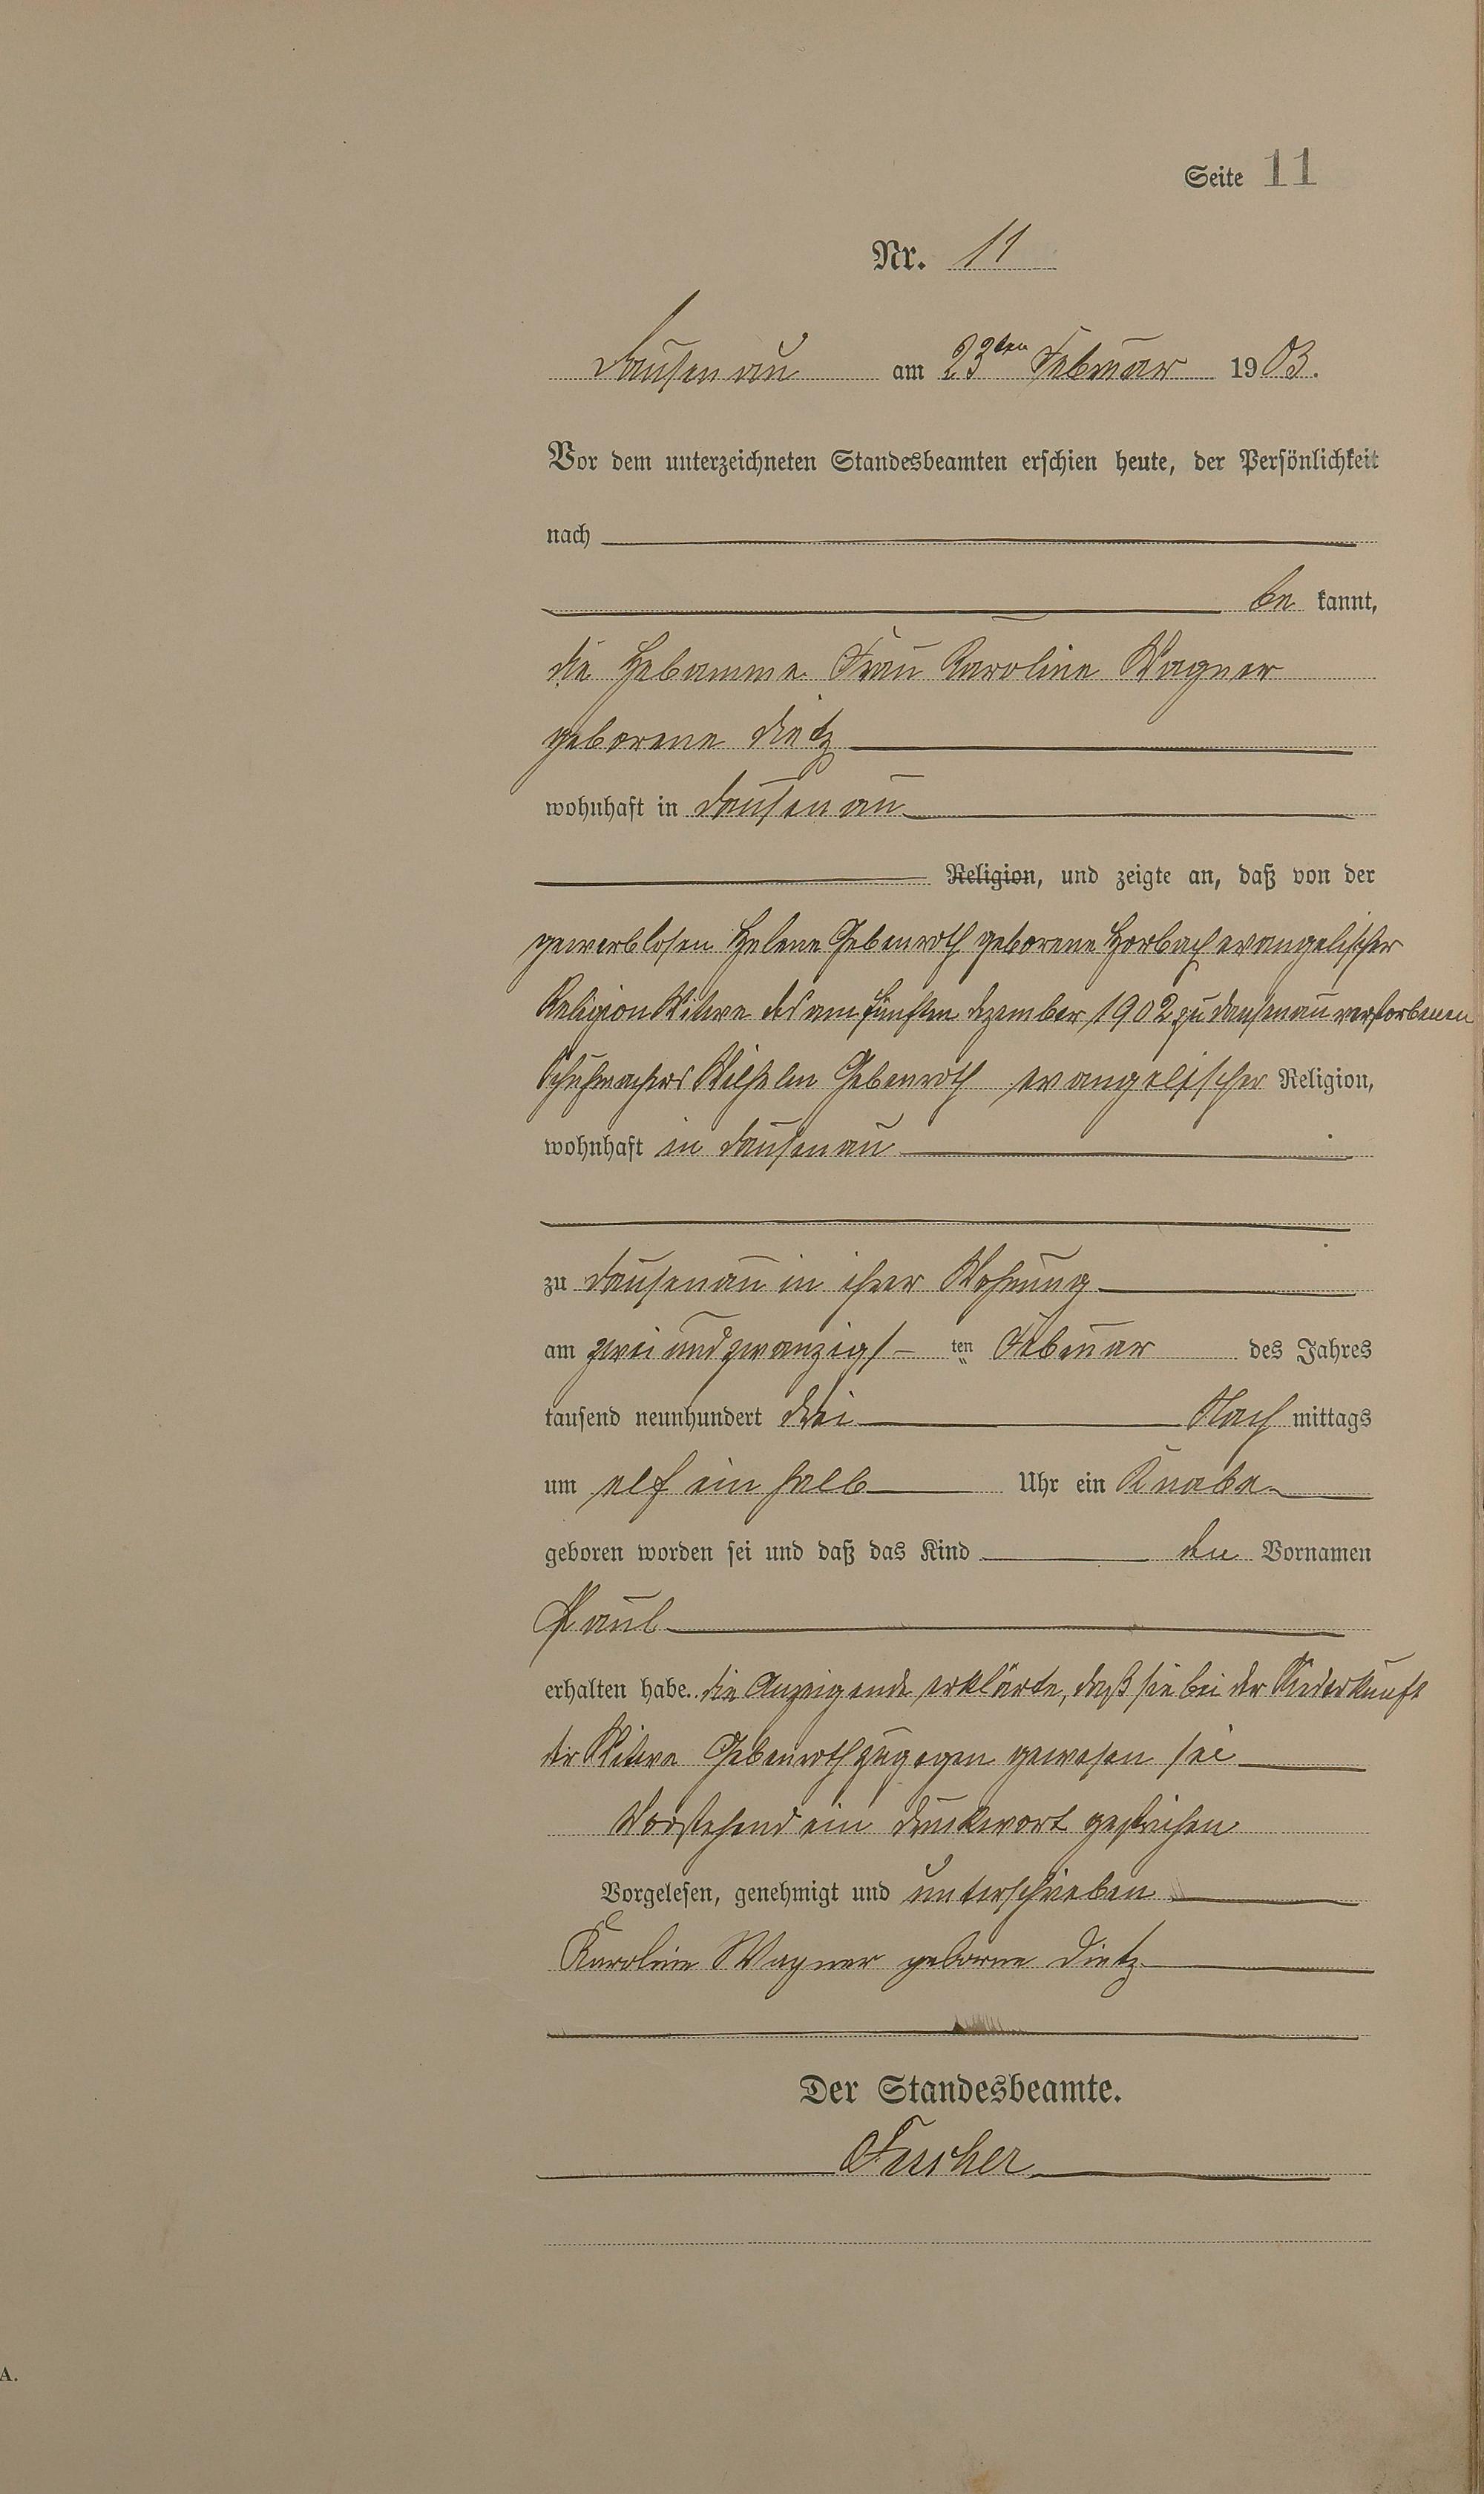 Seite 11
Nr. 11
Dausenau am 23ten Februar 1903.
Vor dem unterzeichneten Standesbeamten erschien heute, der Persönlichkeit
nach
be kannt,
die Hebamme Frau Karoline Wagner
geborene Dietz
wohnhaft in Dausenau
Religion, und zeigte an, daß von der
gewerblosen Helene Gebenroth geborene Horbach evangelischer
Religion Witwe des am fünften Dezember 1902 zu Dausenau verstorbenen
Schuhmachers Wilhelm Gebenroth evangelischer Religion,
wohnhaft in Dausenau
zu Dausenau in ihrer Wohnung
am zwei und zwanzigs- ten Februar des Jahres
tausend neunhundert drei Nach mittags
um elf ein halb Uhr ein Knabe
geboren worden sei und daß das Kind den Vornamen
Paul
erhalten habe. Die Anzeigende erklärte, daß sie bei der Niederkunft
der Witwe Gebenroth zugegen gewesen sei
Vorstehend ein Druckwort gestrichen
Vorgelesen, genehmigt und unterschrieben
Karoline Wagner geborne Dietz
Der Standesbeamte.
Fischer
A.